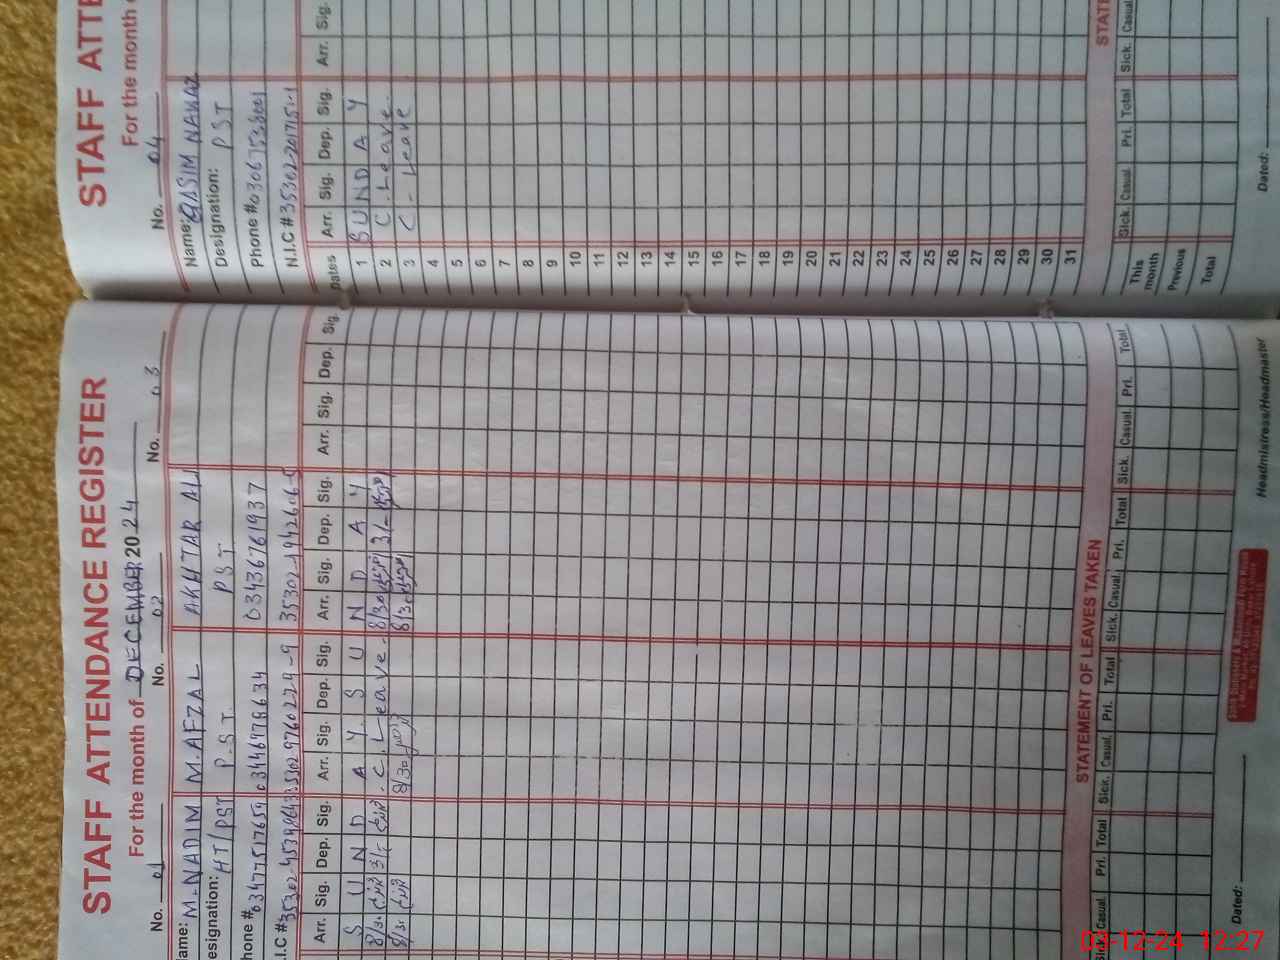 STAFF ATTENDANCE REGISTER
For the month of DECEMBER 2024
No. 01 No. 02 No. 03
ame: M-NADIM M.AFZAL AKHTAR ALI
esignation: HT/PST P.S.T. P S T
hone # 03477517659 03446978634 03436761937
.I.C #
Arr. Sig. Dep. Sig. Arr. Sig. Dep. Sig. Arr. Sig. Dep. Sig. Arr. Sig. Dep. Sig.
S U N D A Y. S U N D A Y
8/30 3/- C. Leave. 8/30 3/-
8/30 8/30 8/30
STATEMENT OF LEAVES TAKEN
Casual. Pri. Total Sick. Casual. Pri. Total Sick. Casual. Pri. Total Sick. Casual. Pri. Total
Dated:
Headmistress/Headmaster
STAFF ATTE
For the month
No. 04
Name: QASIM NAWAZ
Designation: P S T
Phone # 03067538001
N.I.C # 35302-2017151-1
Dates Arr. Sig. Dep. Sig. Arr. Sig.
1 S U N D A Y
2 C. Leave.
3 C - Leave
4
5
6
7
8
9
10
11
12
13
14
15
16
17
18
19
20
21
22
23
24
25
26
27
28
29
30
31
STATE
Sick. Casual. Pri. Total Sick. Casual
This month
Previous
Total
Dated:
03-12-24 12:27